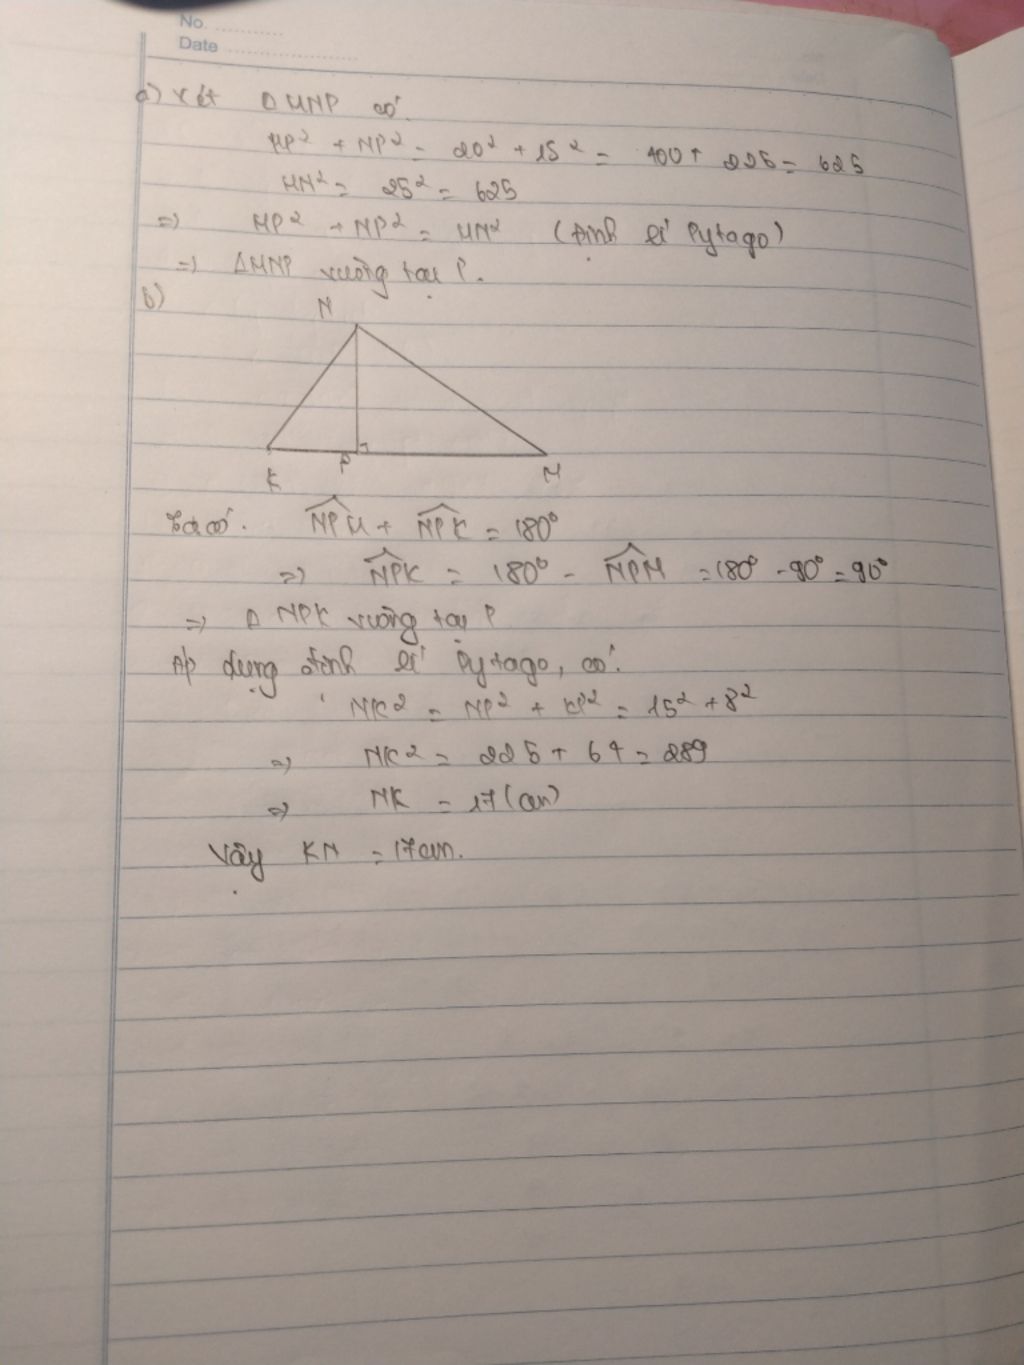 No. ............
Date ......................
a) xét Δ MNP có:
MP² + NP² = 20² + 15² = 400 + 225 = 625
MN² = 25² = 625
=> MP² + NP² = MN² (định lí Pytago)
=> ΔMNP vuông tại P.
b)
N
K P M
Ta có: NPM + NPK = 180°
=> NPK = 180° - NPM = 180° - 90° = 90°
=> Δ NPK vuông tại P
Áp dụng định lí Pytago, có:
NK² = NP² + KP² = 15² + 8²
=> NK² = 225 + 64 = 289
=> NK = 17 (cm)
Vậy KN = 17cm.